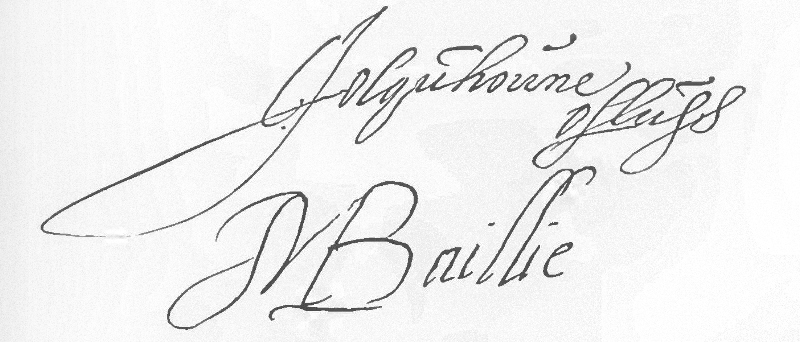 Jo Colquhoune
of luss
M Baillie